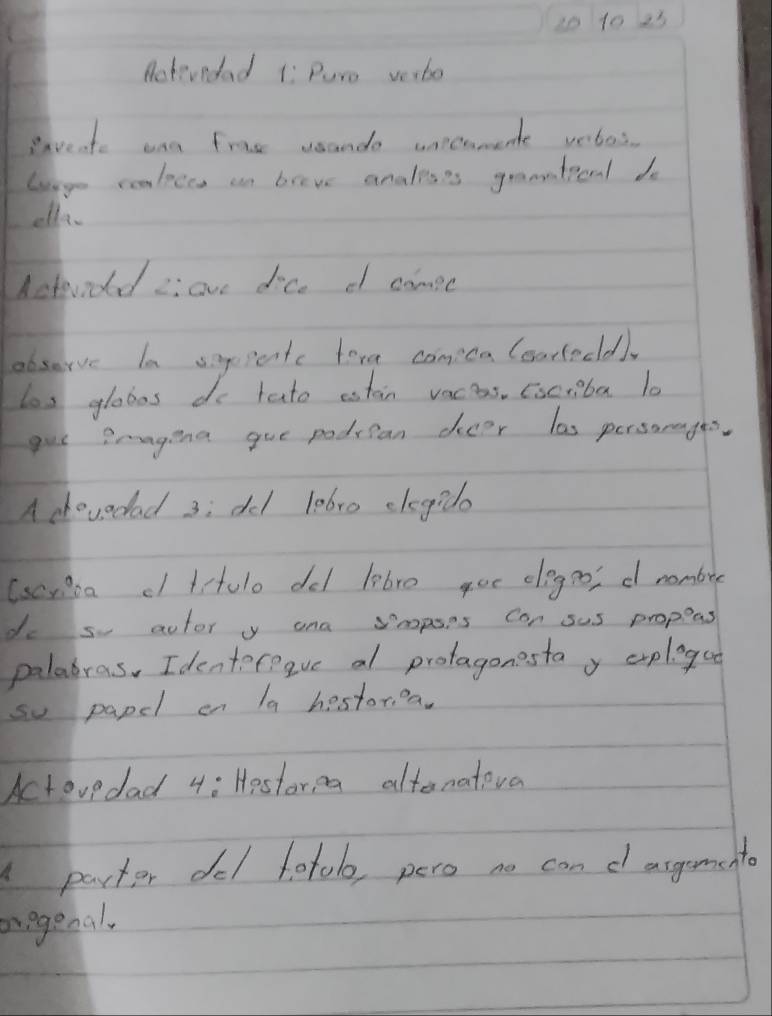 20 10 23
Actividad 1: Puro verbo
invente una frase usando unicamente verbos.
Luego realices un breve analisis gramatical de
ella.
Actividad 2: que dice el cómic
observe la siguiente tira cómica (Gaturro).
los globos de texto están vacios. Escriba lo
que imagina que podrian decir los personajes.
Actividad 3: del libro elegido
Escriba el titulo del libro que eligió, el nombre
de su autor y una sinopsis con sus propias
palabras. Identifique al protagonista y explique
su papel en la historia.
Actividad 4: Historia alternativa
A partir del titulo, pero no con el argumento
original.